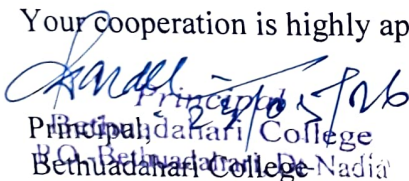 Your cooperation is highly ap
Principal
Principal,
Bethuadahari College
P.O.-Bethuadahari, Dt-Nadia
Bethuadahari College